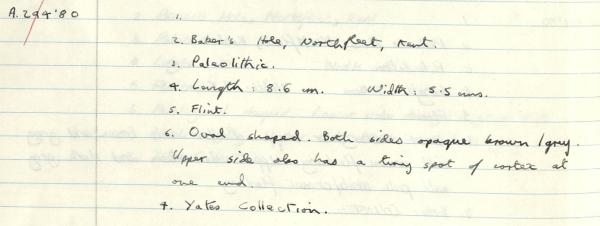 A.244'80 1.
2. Baker's Hole, Northfleet, Kent.
3. Palaeolithic.
4. Length: 8.6 cm. Width: 5.5 cms.
5. Flint.
6. Oval shaped. Both sides opaque brown/grey.
Upper side also has a tiny spot of cortex at
one end.
7. Yates Collection.